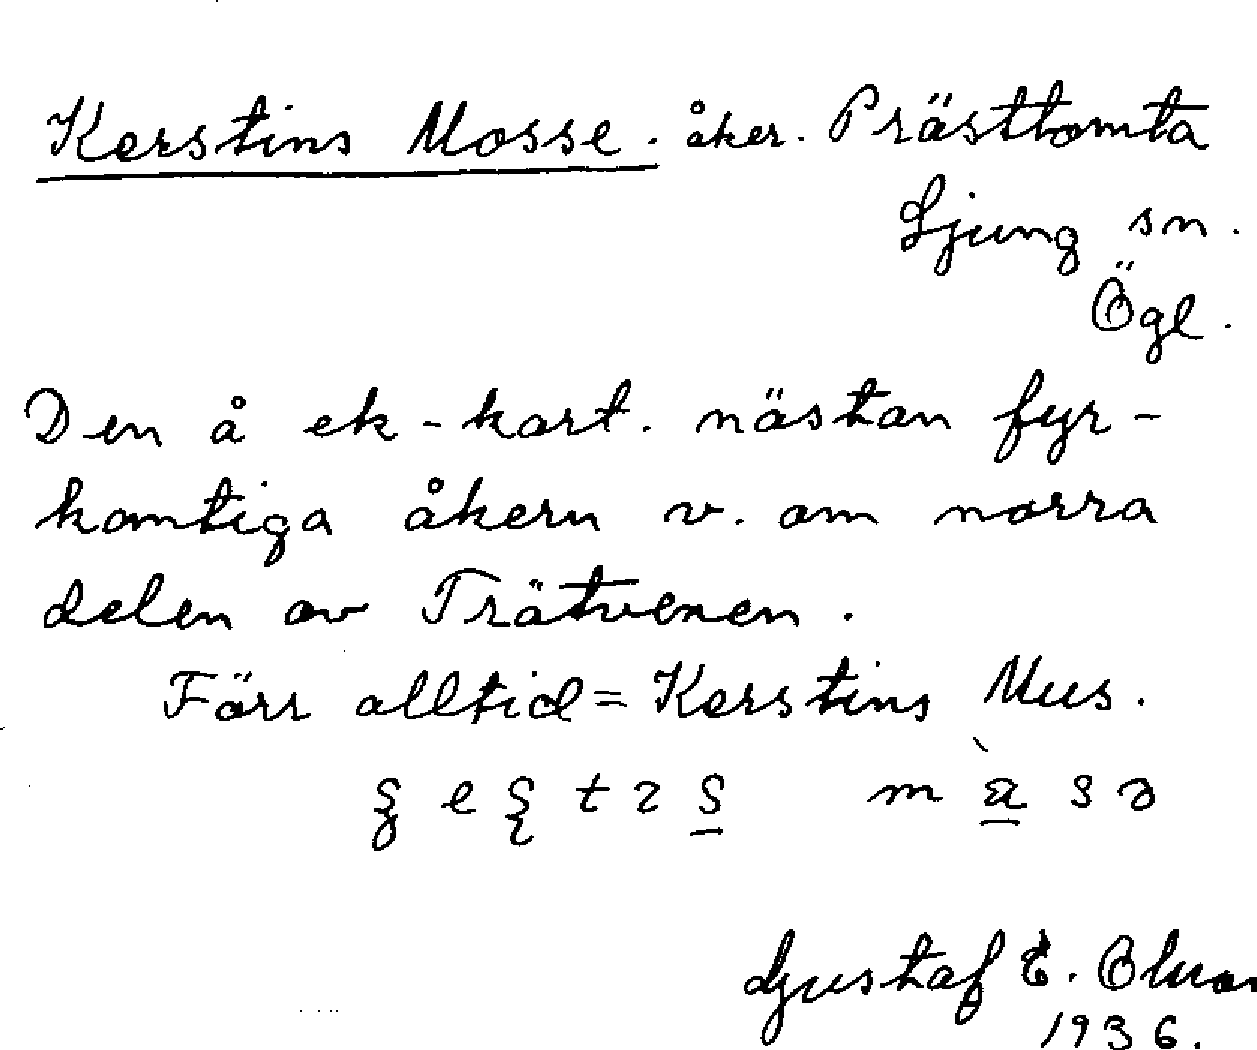 Kerstins Mosse. åker. Prästtomta
Ljung sn.
Ögl.
Den å ek-kart. nästan fyr-
kantiga åkern v. om norra
delen av Trätvenen.
Förr alltid = Kerstins Mus.
Gustaf E.
1936.